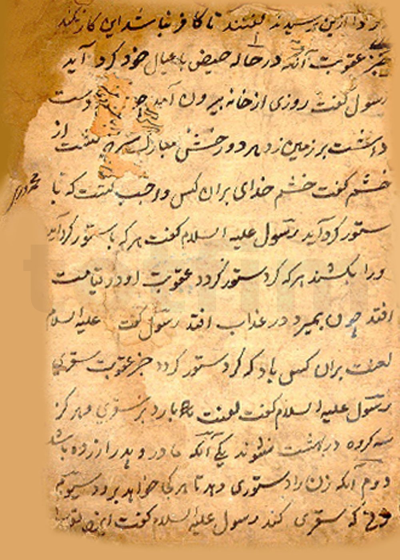 از من پرسیدند گفتند تا کافر نباشد این کار نکند
خبر عقوبت آنکه در حاله حیض با عیال خود کرد آید
رسول گفت روزی از خانه بیرون آمد دست
داشت بر زمین زد هر دو چشمش مبارک گفت از
خشم گفت خشم خدای بران کس واجب گشت که با
ستور کرد آید رسول علیه السلام گفت هر که با ستور کرد آید
ورا بکشند هر که کرد ستور کردد عقوبت او در قیامت
افتد چون بمیرد در عذاب افتد رسول گفت علیه السلام
لعنت بران کس باد که کرد ستور کردد خبر عقوبت سعتری
رسول علیه السلام گفت لعنت باد بر سعتری و هر کز
سه کروه در بهشت نشوند یکی آنکه مادر و پدر ازرده باشد
دوم آنکه زن را دستوری دهد تا هر کی خواهد برود سیوم
که سعتری کند رسول علیه السلام گفت